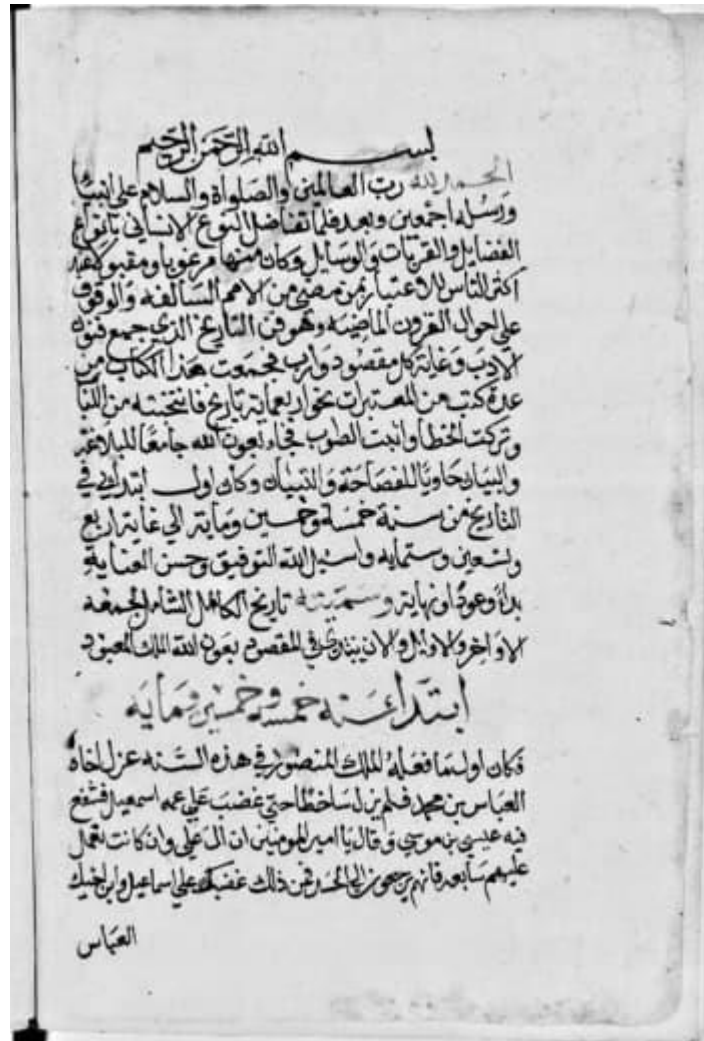 بسم الله الرحمن الرحيم
الحمد لله رب العالمين والصلواة والسلام على انبيائه
ورسله اجمعين وبعد فلما تفاضل النوع الانساني بانواع
الفضايل والقربات والوسايل وكان منها مرغوبا ومقبولا عند
اكثر الناس للاعتبار بمن مضى من الامم السالفه والوقوف
على احوال القرون الماضيه وهو فن التاريخ الذي جمع فنون
الادب وغاية كل مقصود وارب فجمعت هذا الكتاب من
عدة كتب من المعتبرات نحو اربعماية تاريخ فانتخبته من
وتركت الخطا واثبت الصوب فجاء بعون الله جامعا للبلاغه
والبيان حاويا للفصاحة والتبيان وكان اول ابتدائي في
التاريخ من سنة خمسة وخمسين وماية الي غاية اربع
وتسعين وستمايه واسيل الله التوفيق وحسن العناية
بداء وعودا ونهاية وسميته تاريخ الكامل الشامل لجمعه
الاواخر والاوايل والان نبتدئ في المقصود بعون الله الملك المعبود
ابتدا سنه خمسه وخمسين ومايه
فكان اول ما فعله الملك المنصور في هذه السنه عزل اخاه
العباس بن محمد فلم يزل ساخطا حتي غضب علي عمه اسمعيل فشفع
فيه عيسي بن موسي وقال يا امير المومنين ان ال علي وان كانت نعمل
عليهم سابعه فانهم يرجعون الي الحسد فمن ذلك غضبك علي اسماعيل وابن اخيك
العباس